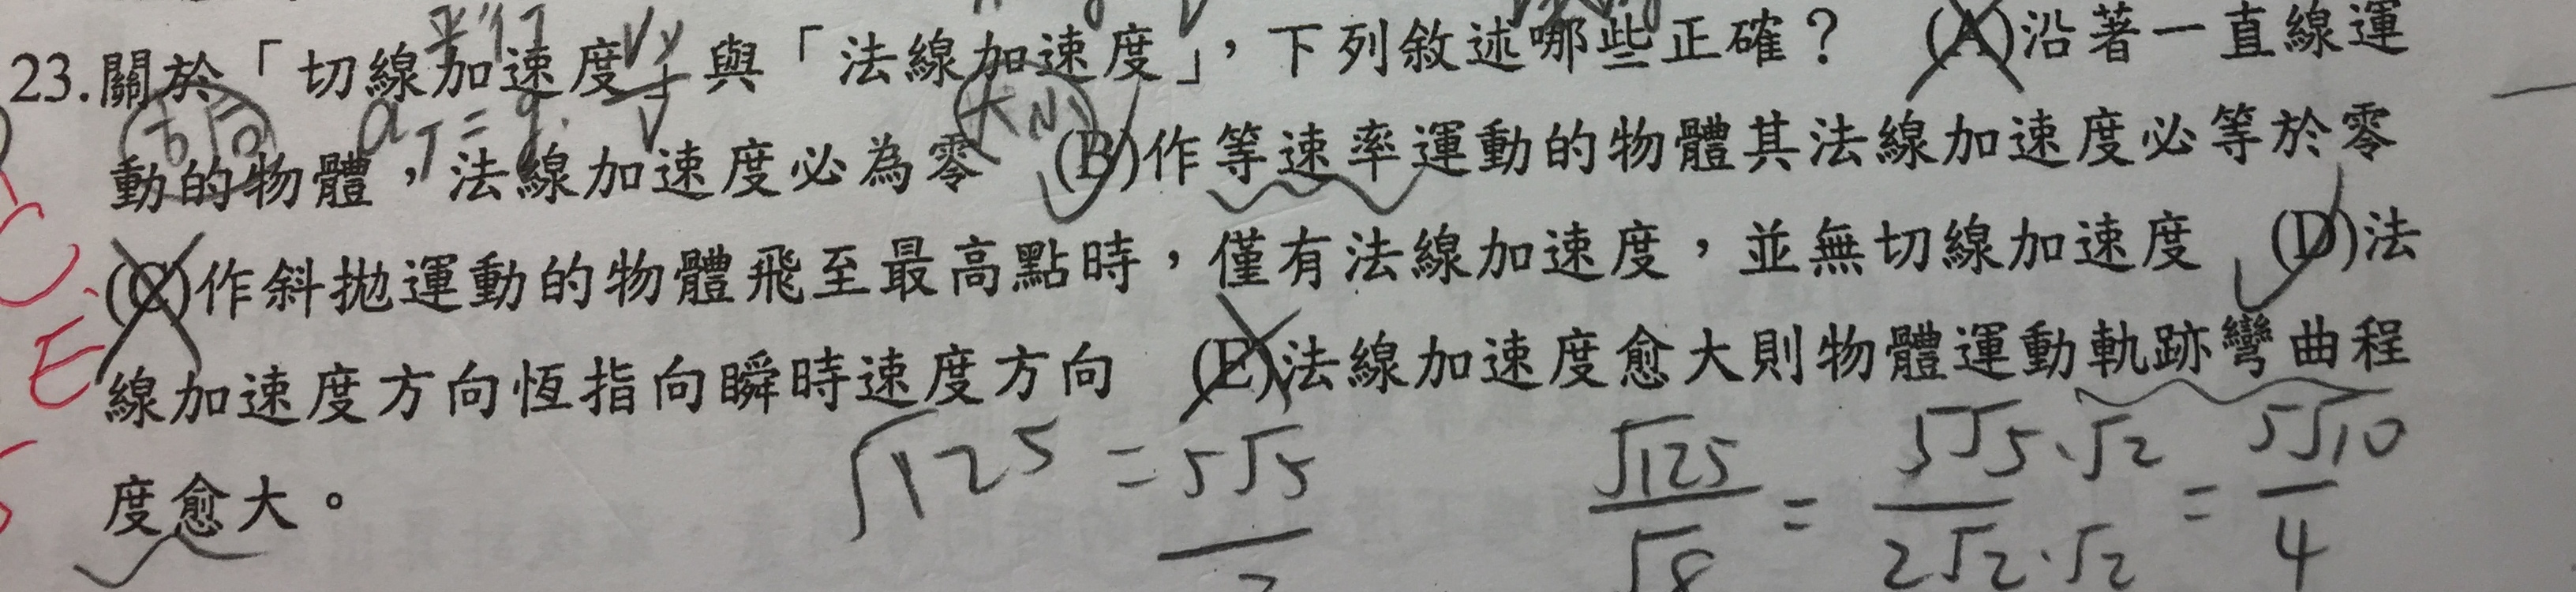 23.關於「切線加速度」與「法線加速度」,下列敘述哪些正確? (A)沿著一直線運
動的物體,法線加速度必為零 (B)作等速率運動的物體其法線加速度必等於零
(C)作斜拋運動的物體飛至最高點時,僅有法線加速度,並無切線加速度 (D)法
線加速度方向恆指向瞬時速度方向 (E)法線加速度愈大則物體運動軌跡彎曲程
度愈大。
平行 Vy
方向 aT = g· Vy/V 大小
C、
E
√125 = 5√5/2
√125/√8 = 5√5·√2/2√2·√2 = 5√10/4